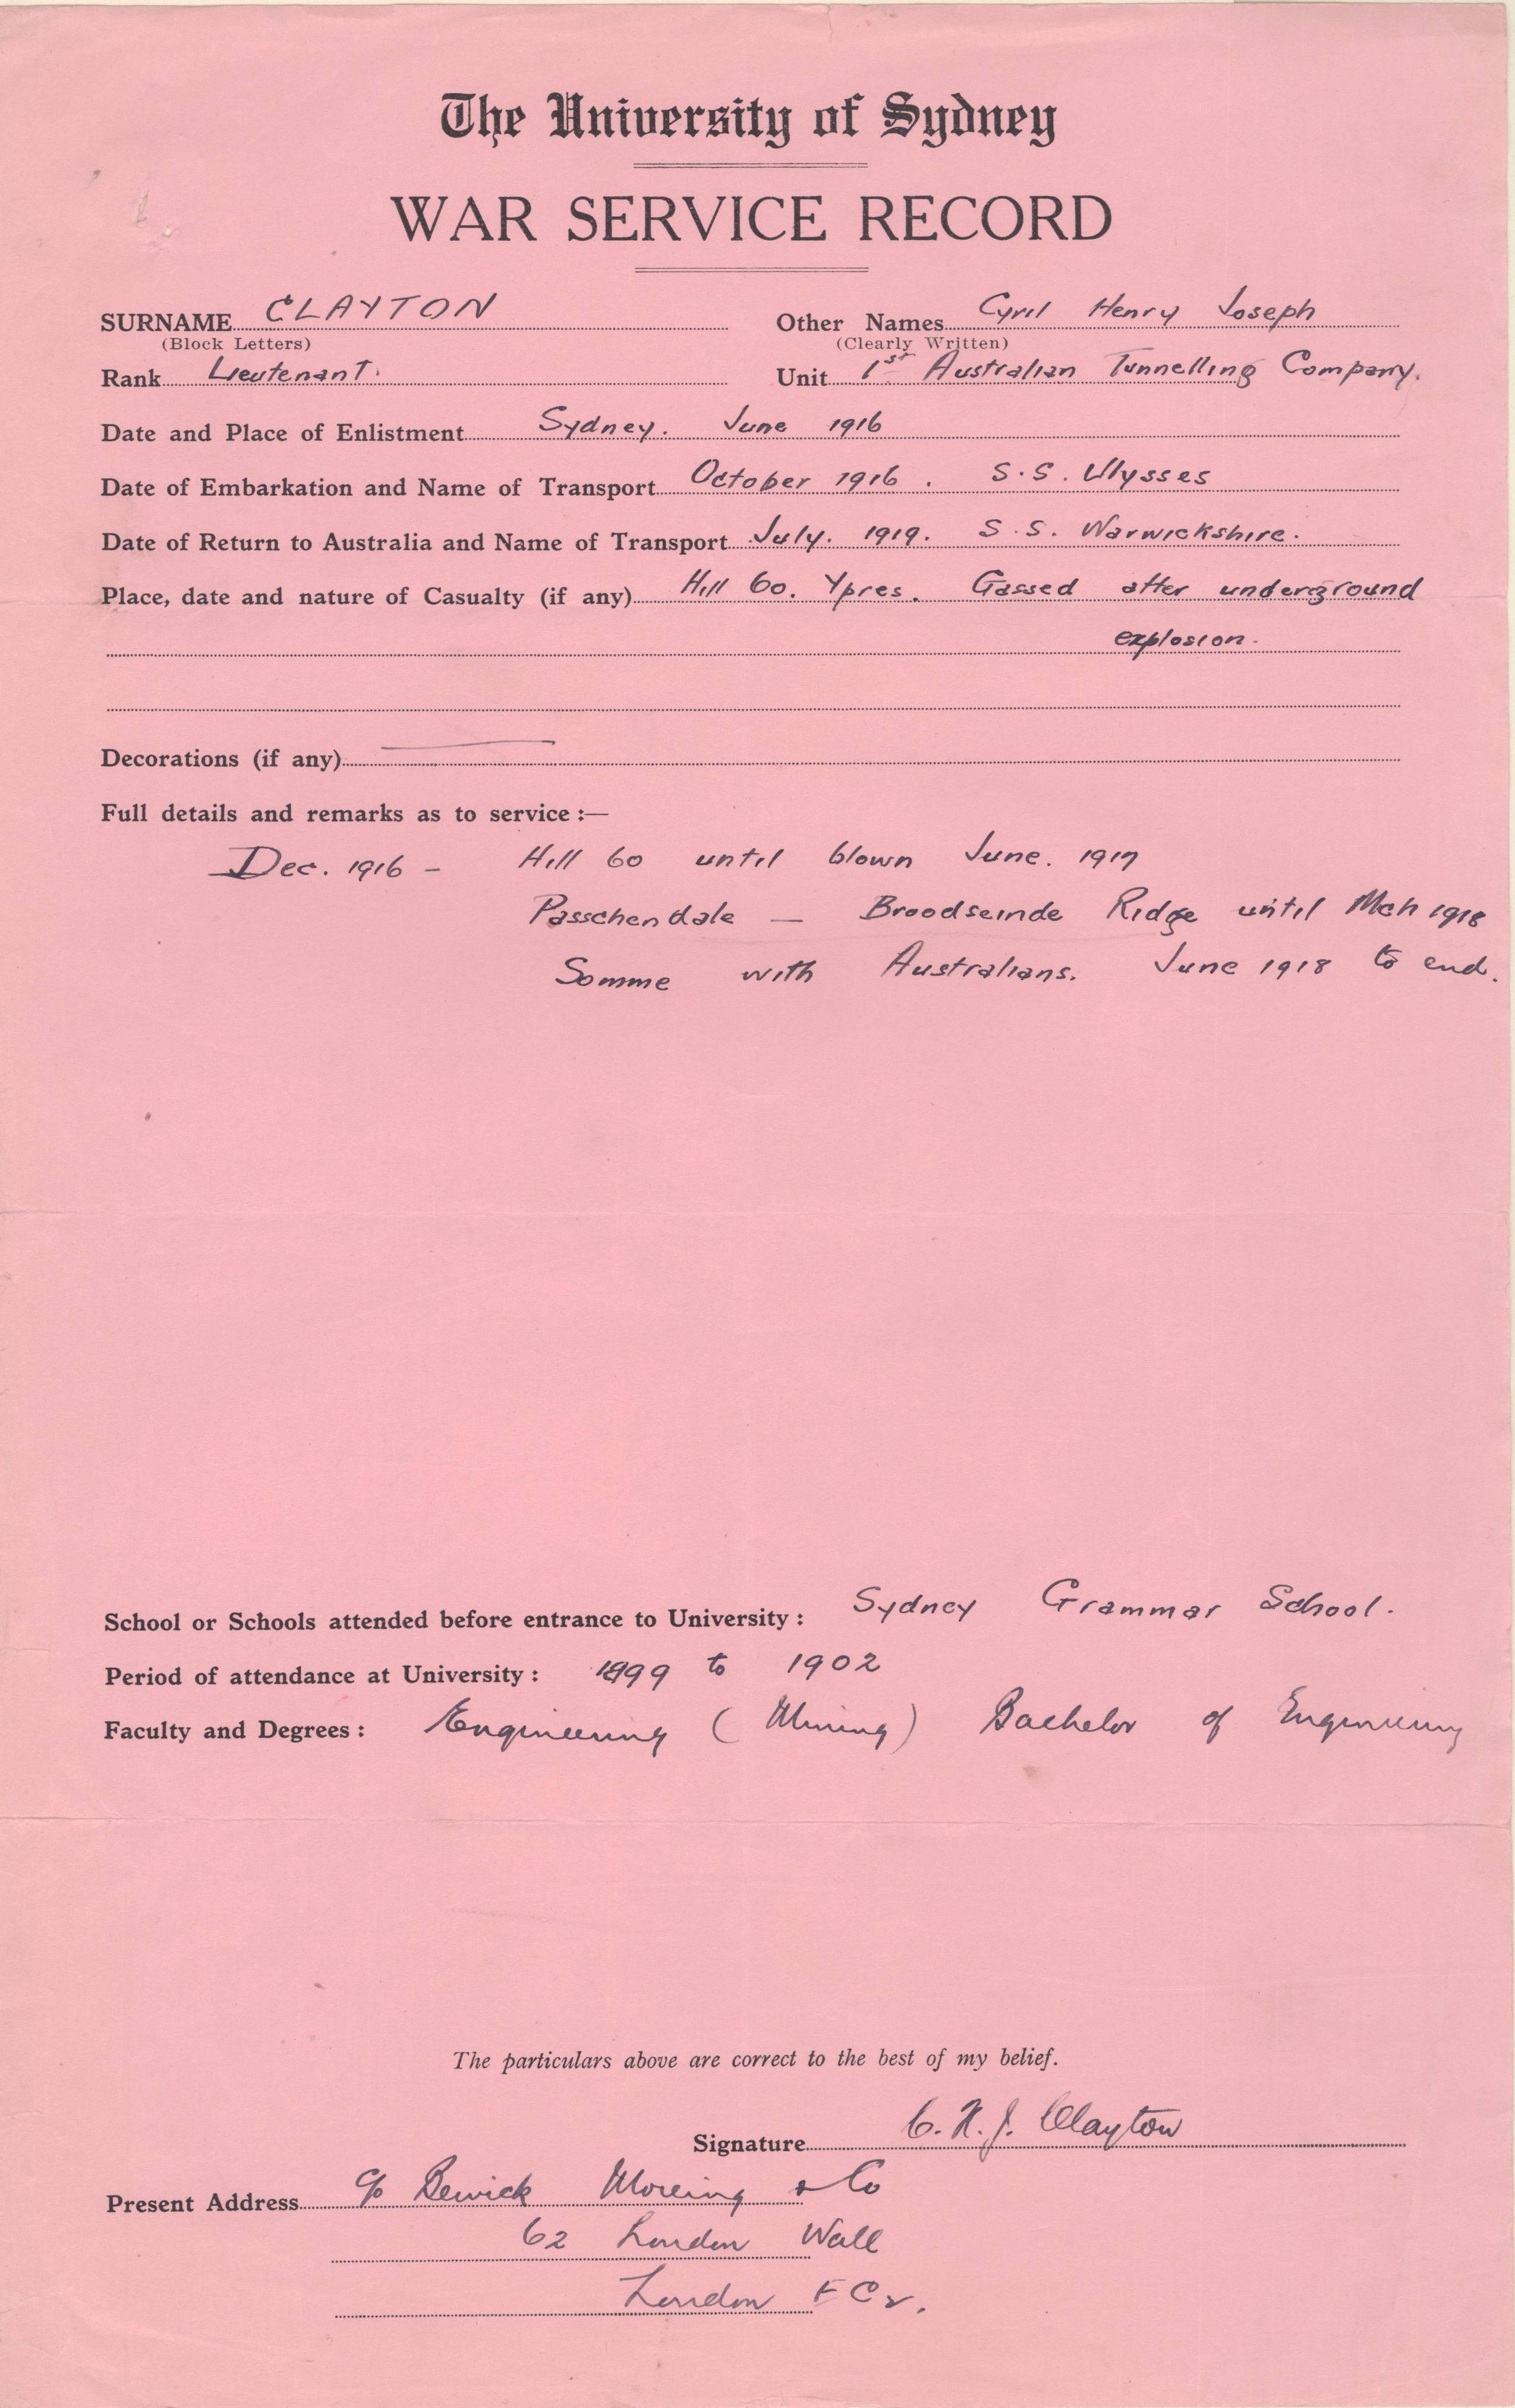 The University of Sydney
WAR SERVICE RECORD
SURNAME CLAYTON Other Names Cyril Henry Joseph
(Block Letters) (Clearly Written)
Rank Lieutenant. Unit 1st Australian Tunnelling Company.
Date and Place of Enlistment Sydney. June 1916
Date of Embarkation and Name of Transport October 1916. S.S. Ulysses
Date of Return to Australia and Name of Transport July. 1919. S.S. Warwickshire.
Place, date and nature of Casualty (if any) Hill 60. Ypres. Gassed after underground
explosion.
Decorations (if any) —
Full details and remarks as to service:—
Dec. 1916 - Hill 60 until blown June. 1917
Passchendale — Broodseinde Ridge until Mch 1918
Somme with Australians. June 1918 to end.
School or Schools attended before entrance to University: Sydney Grammar School.
Period of attendance at University: 1899 to 1902
Faculty and Degrees: Engineering (Mining) Bachelor of Engineering
The particulars above are correct to the best of my belief.
Signature C. H. J. Clayton
Present Address c/o Bewick Moreing & Co
62 London Wall
London EC2.